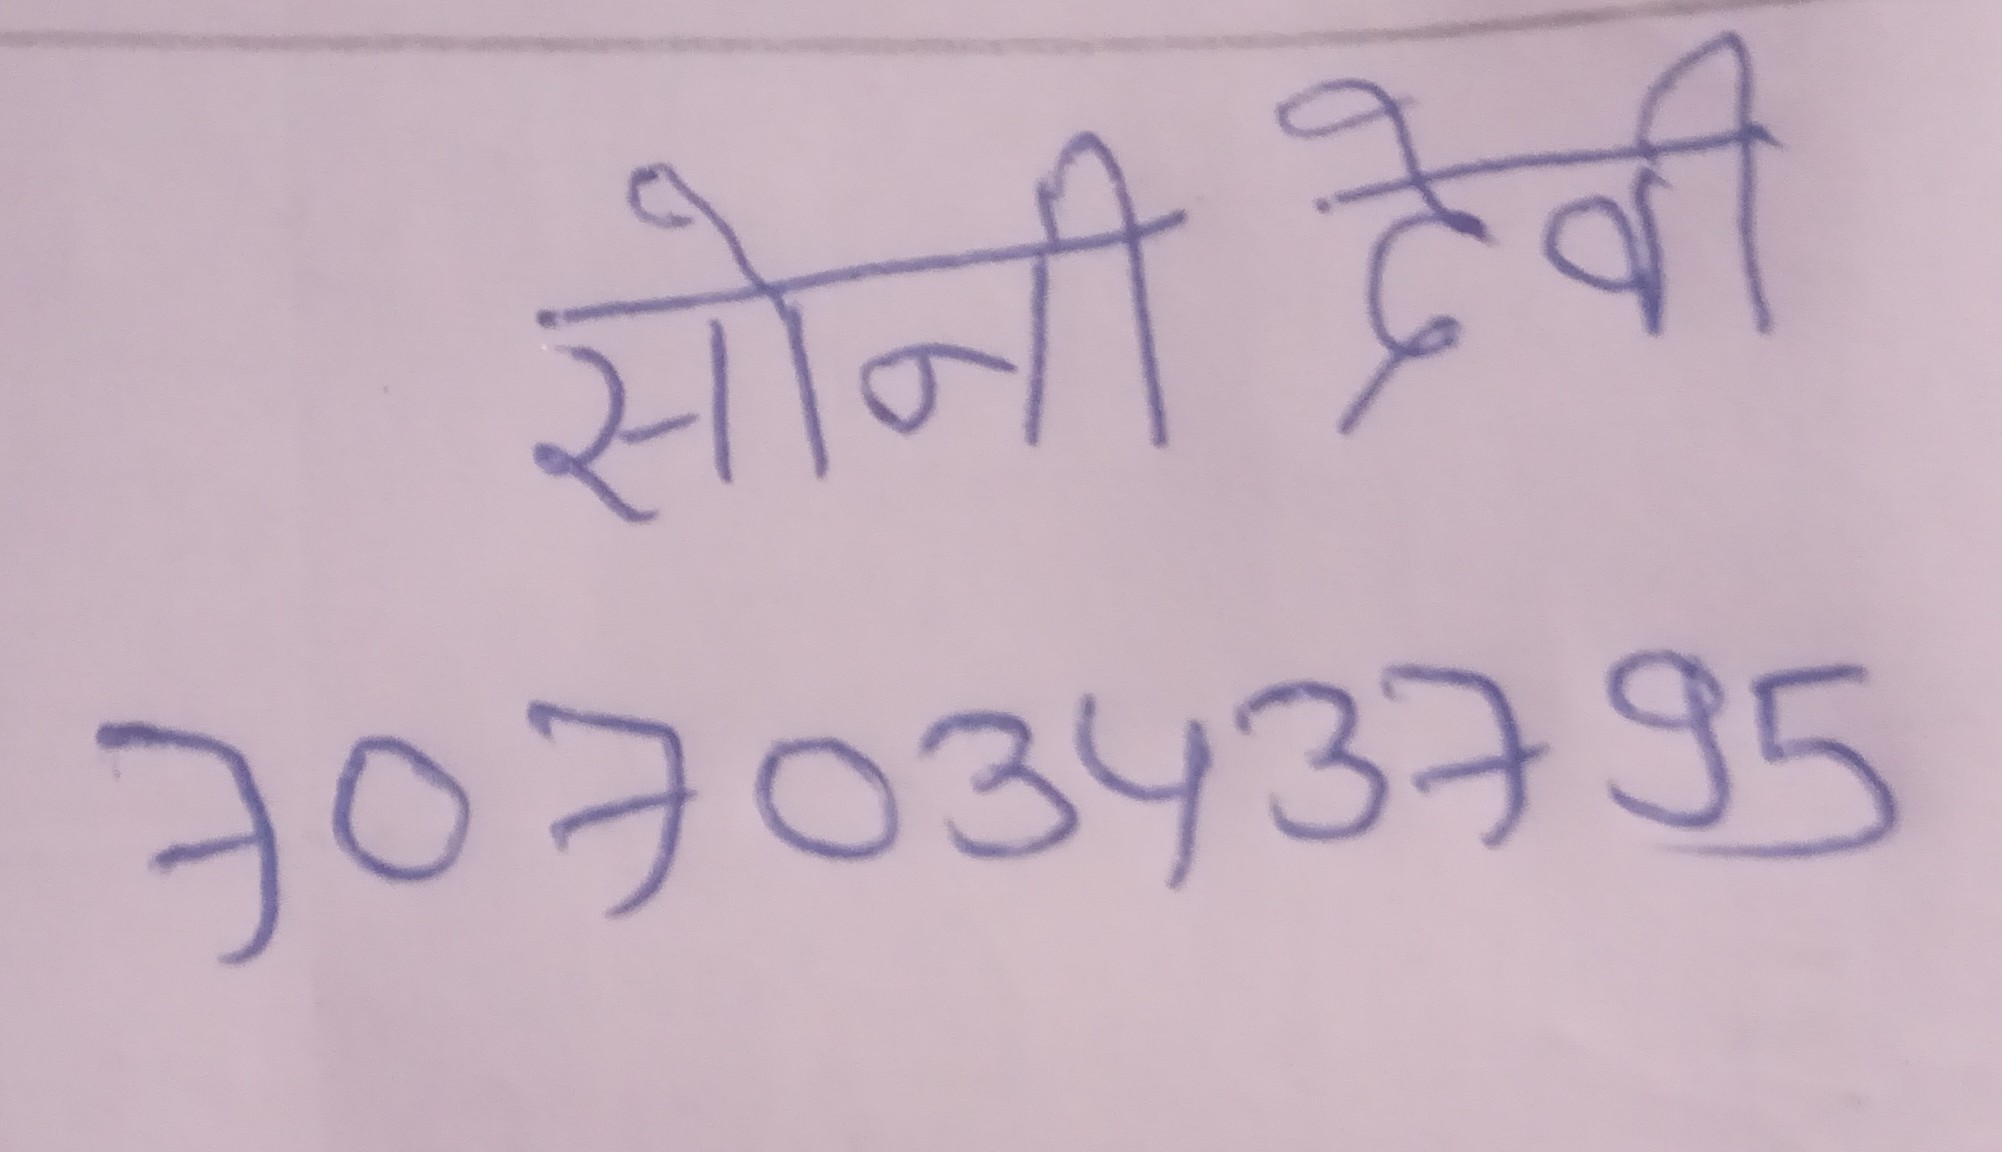 सोनी देवी
7070343795